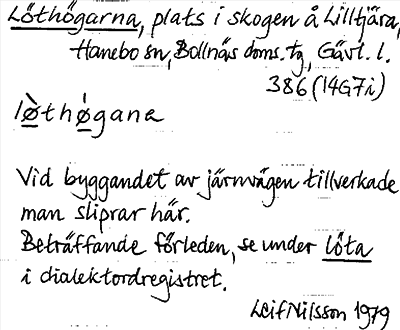 Löthögarna, plats i skogen å Lilltjära,
Hanebo sn, Bollnäs doms. tg, Gävl. l.
386 (14G7i)
lø̀thǿgana
Vid byggandet av järnvägen tillverkade
man sliprar här.
Beträffande förleden, se under löta
i dialektordregistret.
Leif Nilsson 1979